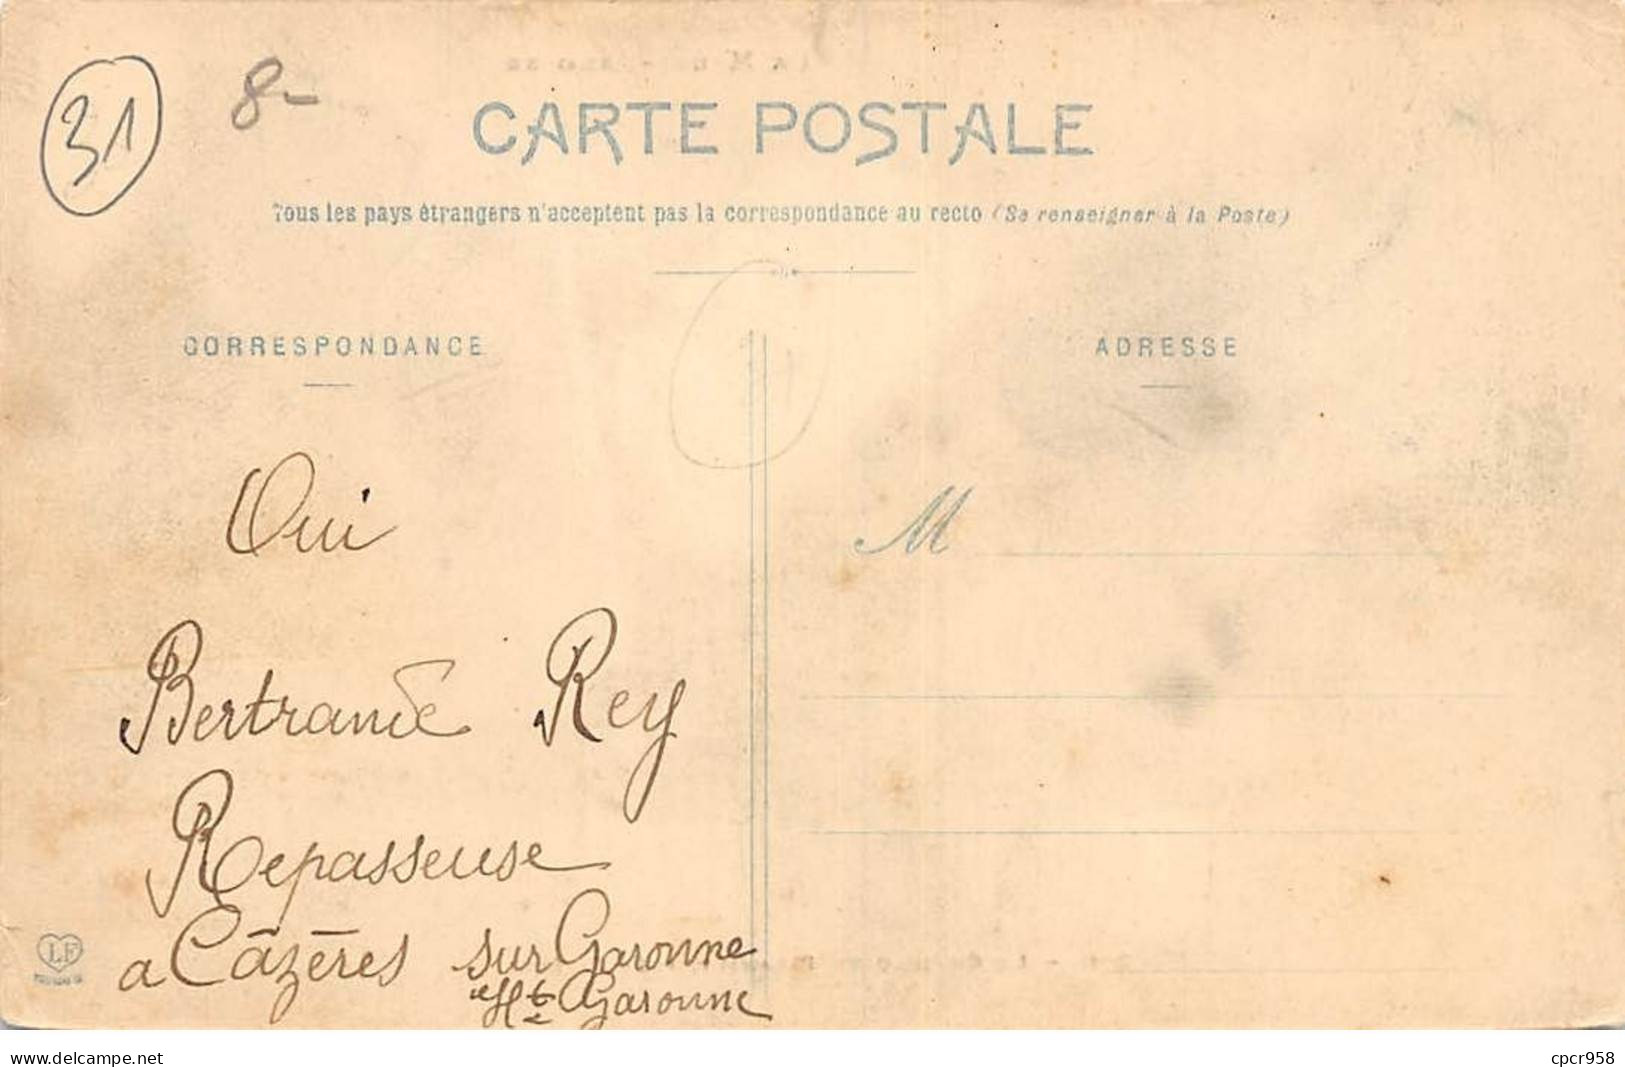 31
8-
CARTE POSTALE
Tous les pays étrangers n'acceptent pas la correspondance au recto (Se renseigner à la Poste)
CORRESPONDANCE
ADRESSE
Oui
M
Bertrande Rey
Repasseuse
a Cazères sur Garonne
Hte Garonne
LF
www.delcampe.net
cpcr958